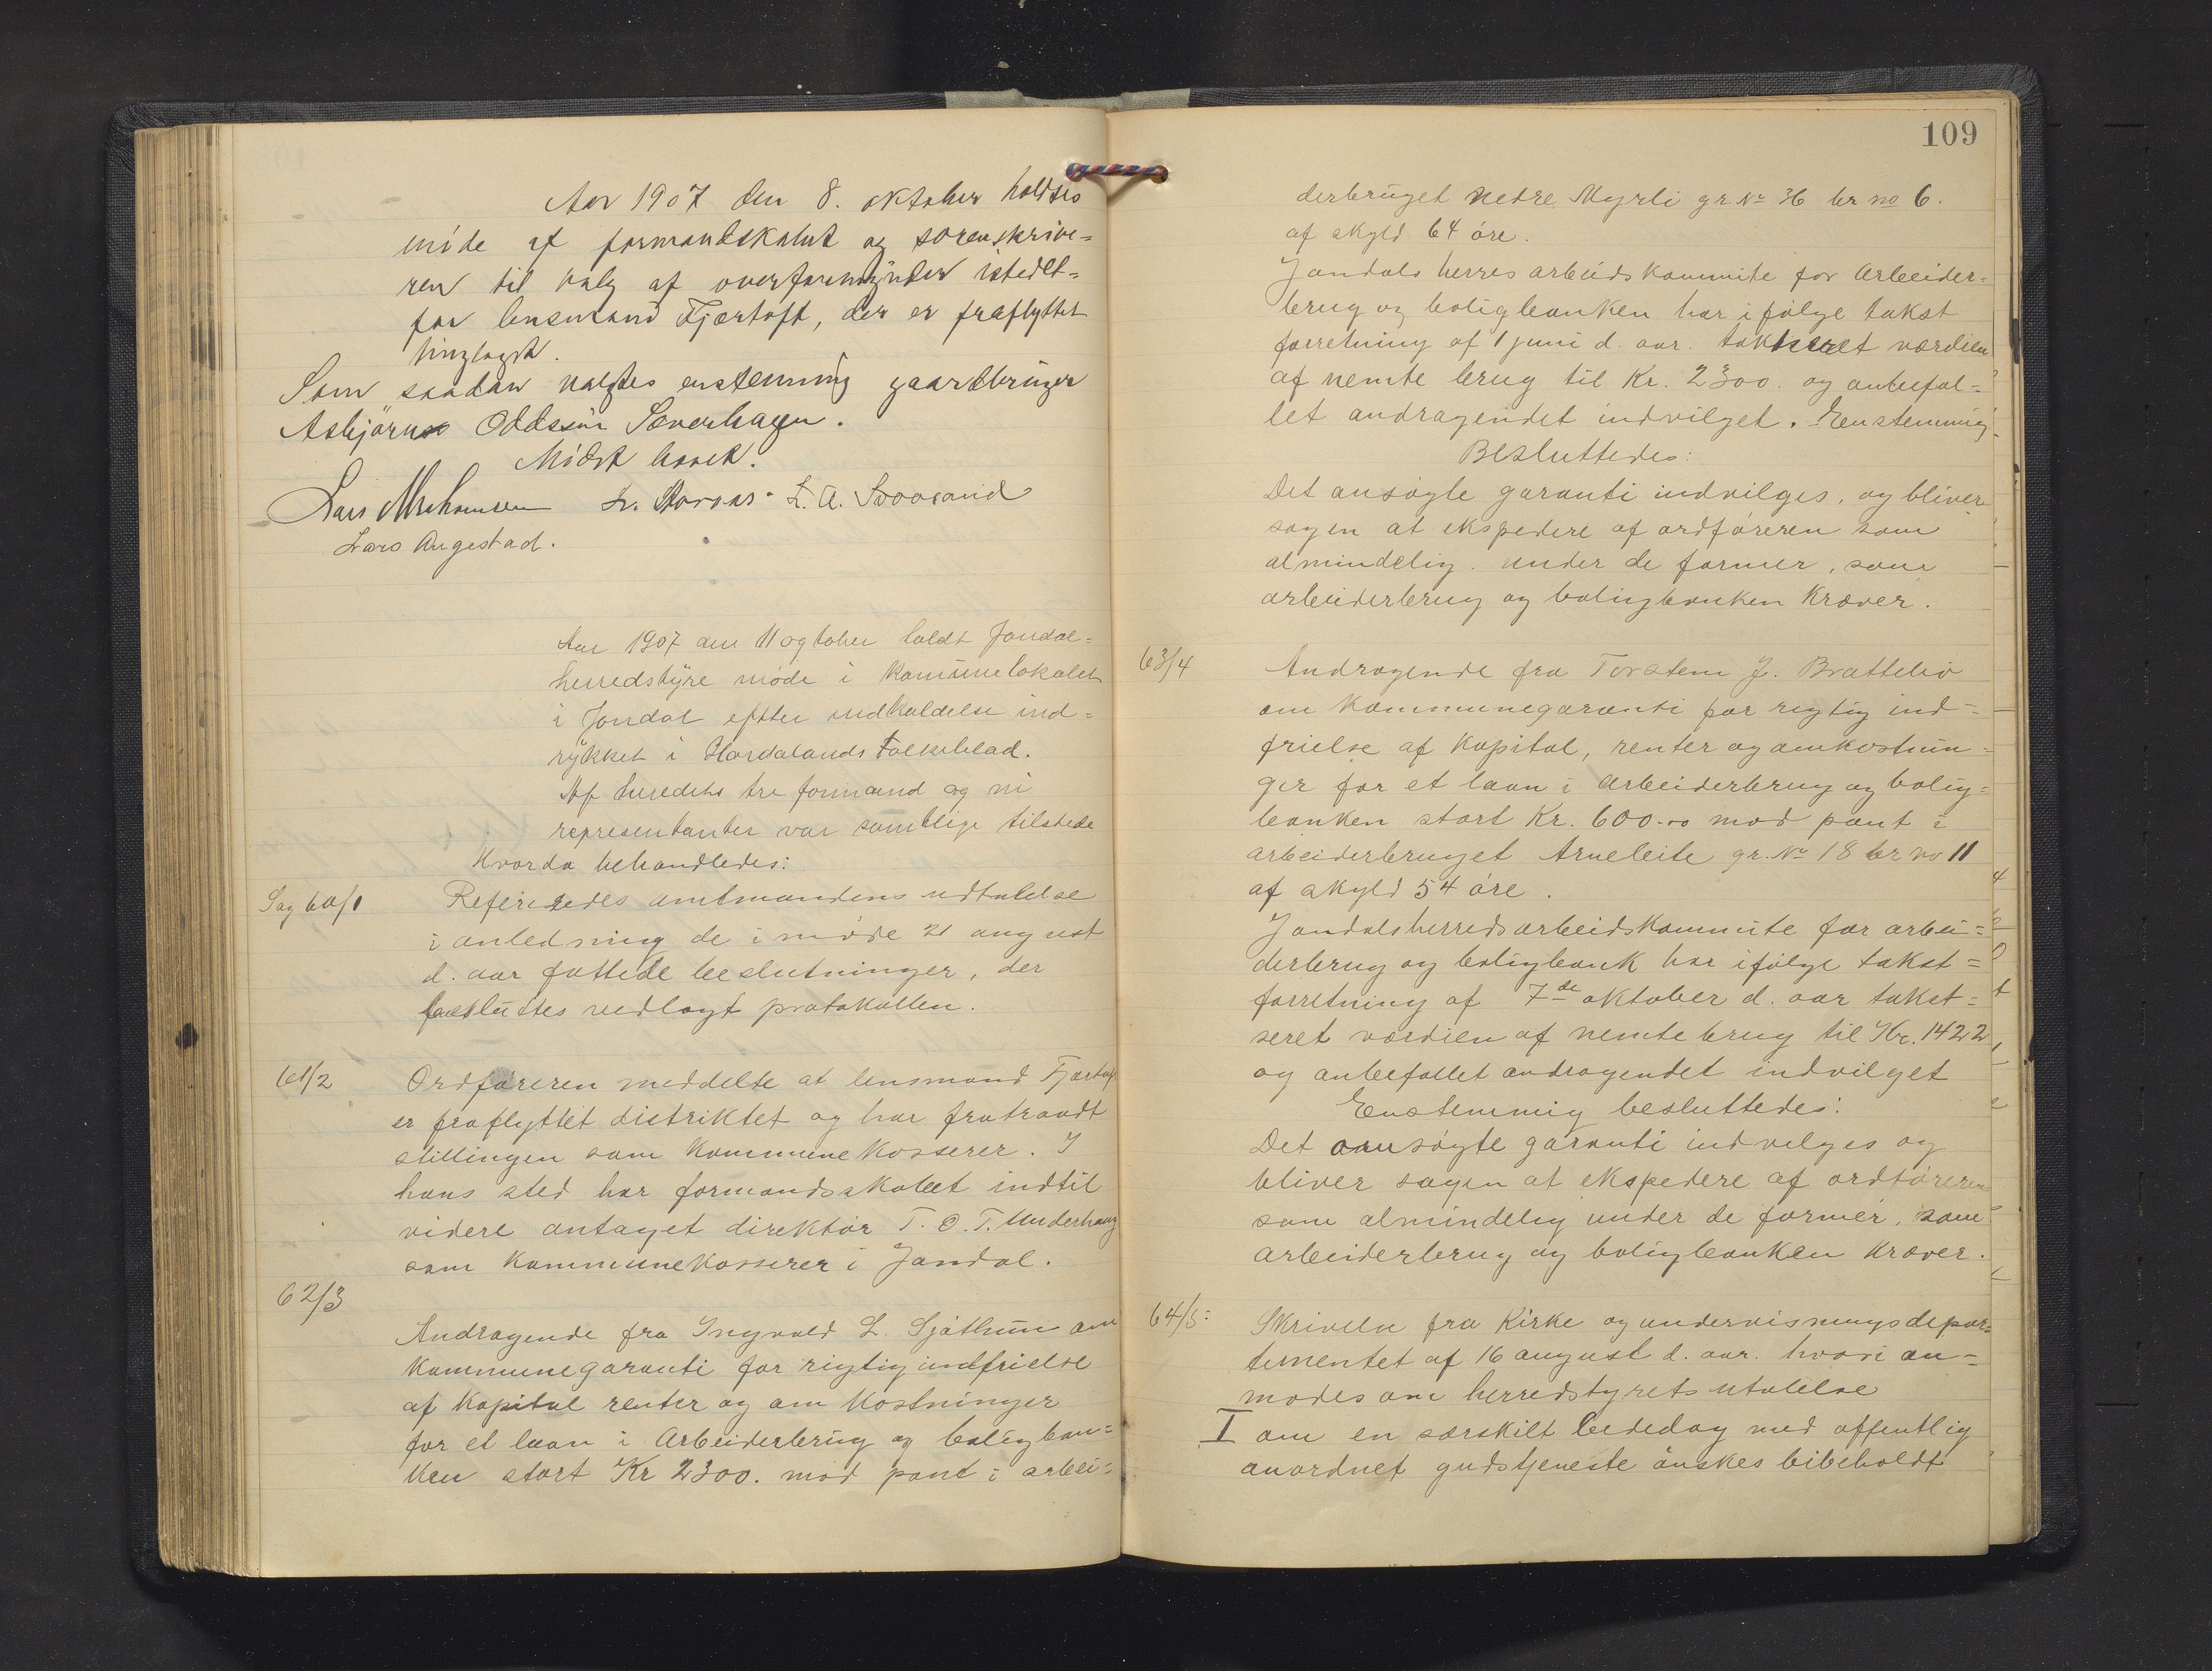 Aar 1907 den 8. oktober holdtes
møde af formandskabet og sorenskrive=
ren til valg af overformynder istedet=
for lensmand Fjærtoft, der er fraflyttet
tinglaget.
Som saadan valgtes enstemmig gaardbruger
Asbjørn Oddsøn Sæverhagen.
Mødet hævet.
Lars L. A.
Lars Augestad.
Aar 1907 den 11 ogtober holdt Jondal=
herredstyre møde i Komunelokalet
i Jondal efter indkaldelse ind=
rykket i Hordalands Folkeblad.
Af heredets tre formænd og ni
representanter var samtlige tilstede
Hvorda behandledes:
Sag 60/1
Refereredes amtmandens udtalelse
i anledning de i møde 21 august
d. aar fattede beslutninger, der
besluttes vedlagt protokollen.
61/2
Ordføreren meddelte at lensmand Fjærtoft
er fraflyttet distriktet og har fratraadt
stillingen som Kommunekasserer. I
hans sted har formandsskabet indtil
videre antaget direktør T. O. T. Underhaug
som Kommunekasserer i Jondal.
62/3
Andragende fra Ingvald L. Sjåthun om
Kommunegaranti for rigtig indfrielse
af Kapital renter og om Kostninger
for et laan i Arbeiderbrug og boligban=
ken stort Kr 2300. mod pant i arbei=
109
derbruget nedre Myrli gr. No 36 br no 6.
af skyld 64 øre.
Jondals herres arbeidskommite for Arbeider=
brug og boligbanken har ifølge takst
forretning af 1 juni d. aar. taksseret værdien
af nemte brug til Kr. 2300. og anbefal=
let andragendet indvilget. Enstemmig
Besluttedes:
Det ansøgte garanti indvilges, og bliver
sagen at ekspedere af ordføreren som
almindelig. under de former, som
arbeiderbrug og boligbanken Kræver.
63/4
Andragende fra Torstein J. Brattebø
om Kommunegaranti for rigtig ind=
frielse af Kapital, renter og omkostnin=
ger for et laan i arbeiderbrug og bolig=
banken stort Kr. 600.00 mod pant i
arbeiderbruget Arneleite gr. No 18 br no 11
af skyld 54 øre.
Jondalsherredsarbeidskommite for arbei=
derbrug og boligbank har ifølge takst=
forretning af 7de oktober d. aar takst=
seret værdien af nemte brug til Kr. 1422
og anbefallet andragendet indvilget
Enstemmig besluttedes:
Det ansøgte garanti indvelges og
bliver sagen at ekspedere af ordføreren
som almindelig under de former, som
arbeiderbrug og boligbanken Kræver.
64/5:
Skrivelse fra Kirke og undervisningsdepar=
tementet af 16 august d. aar. hvori an=
modes om herredstyrets utalelse
I om en særskilt bededag med offentlig
anordnet gudstjeneste ønskes bibeholdt